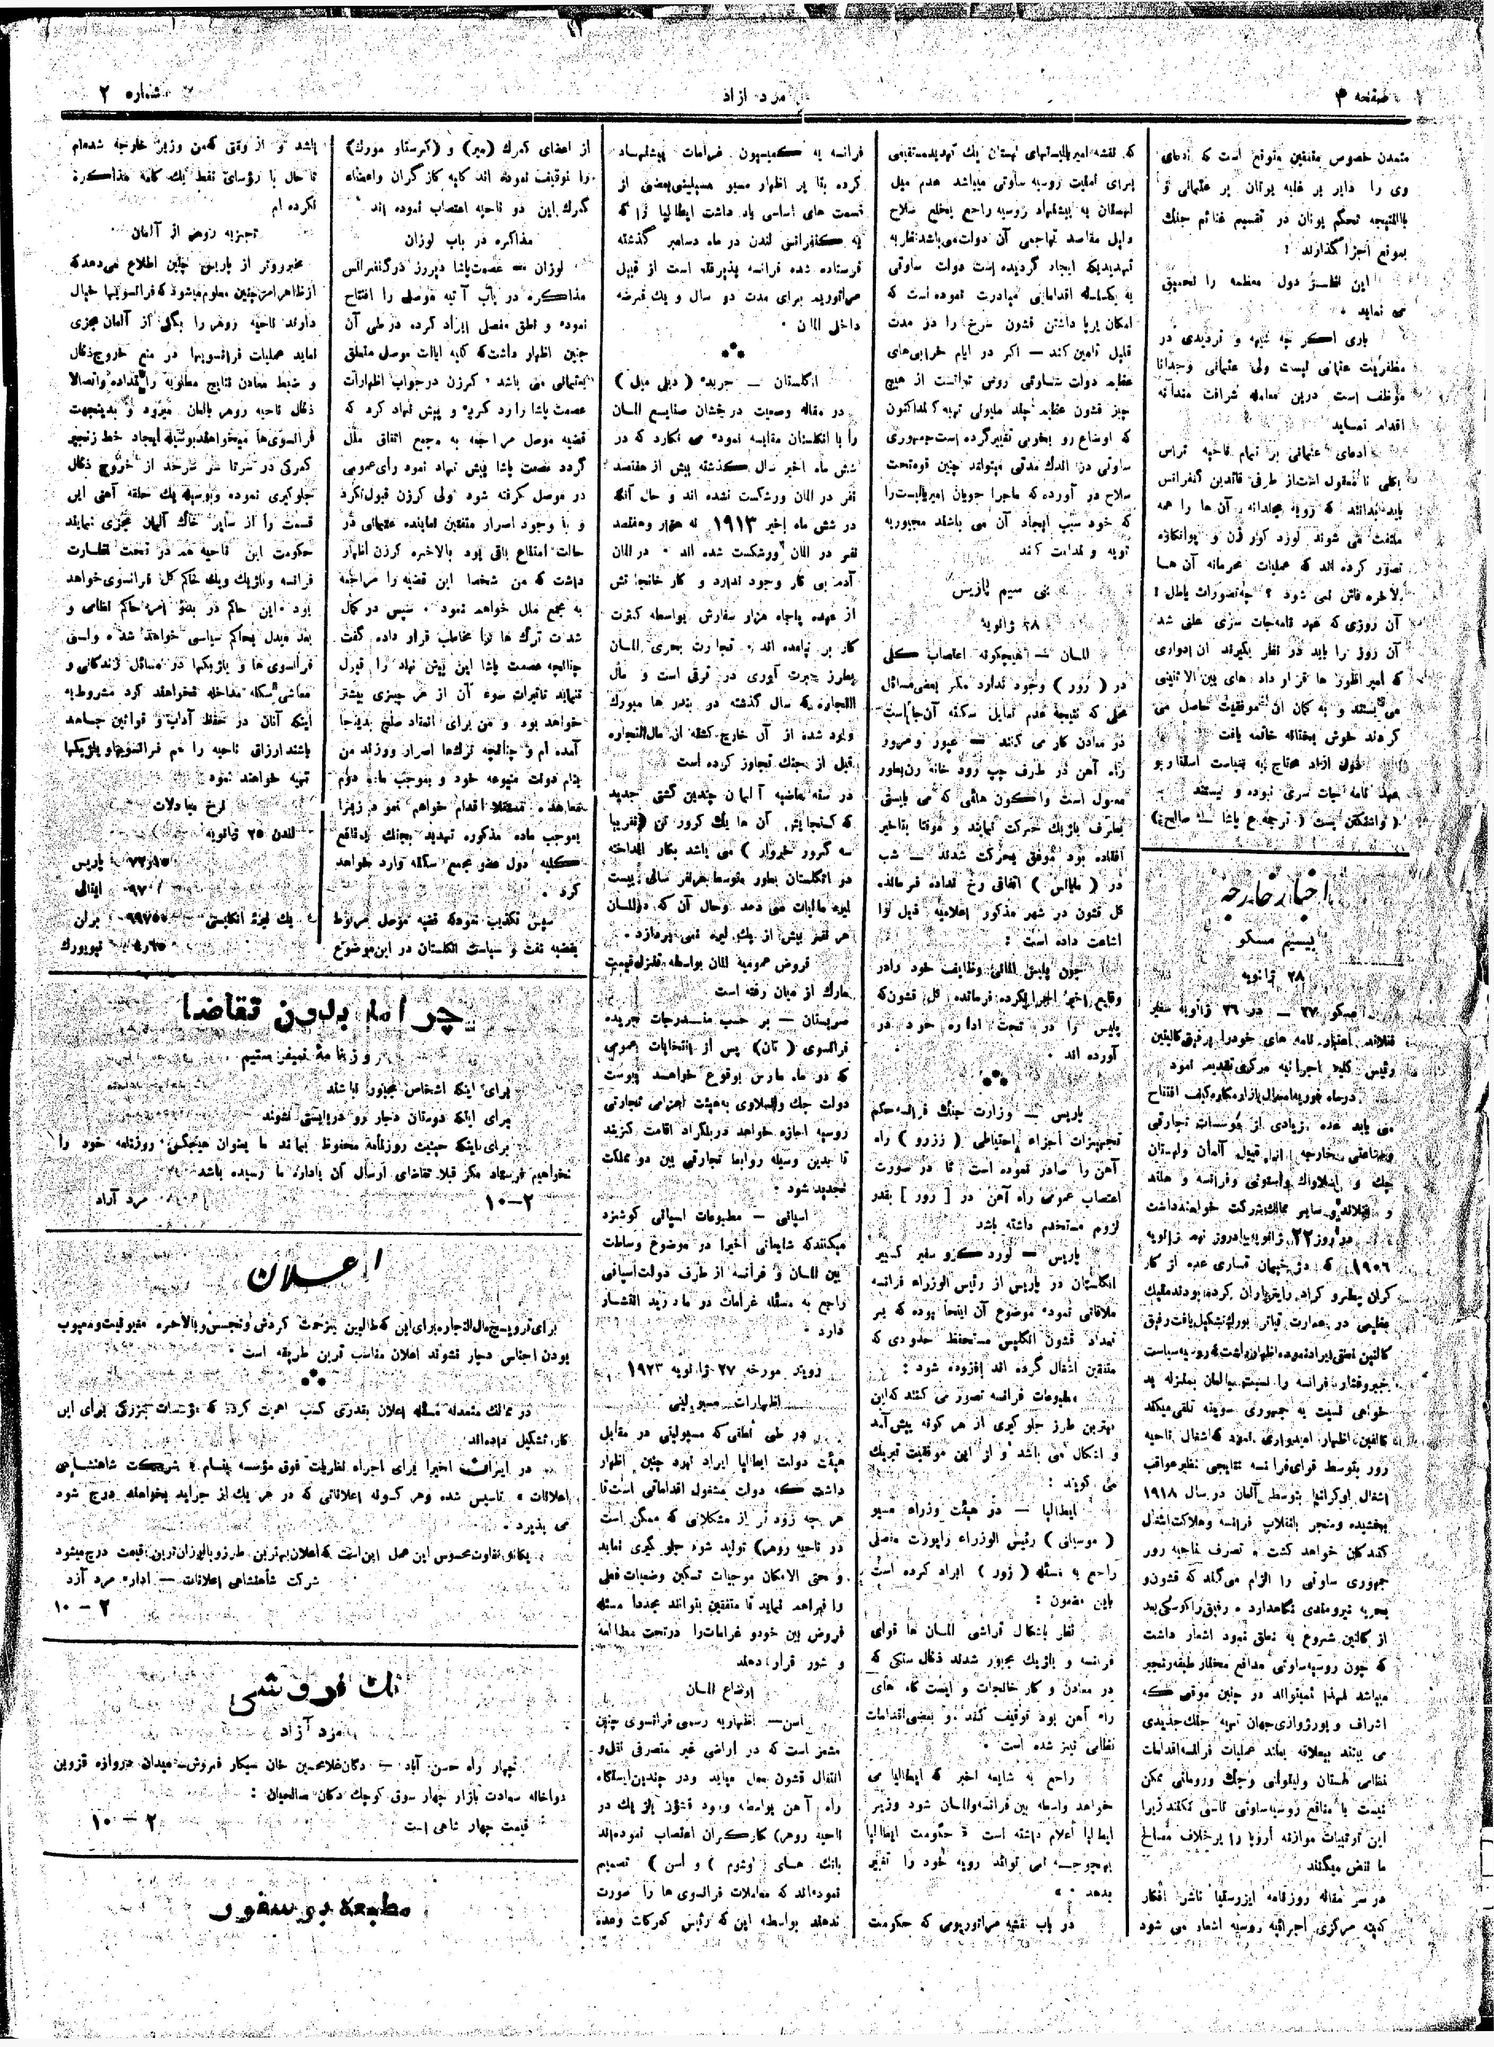 صفحه ۴
مرد آزاد
شماره ۲
متمدن خصوص متفقین متوقع است که ادعای
وی را دایر بر غلبه یونان بر عثمانی و
بالنتیجه تحکم یونان در تقسیم غنائم جنک
بموقع اجرا گذارند :
این افلاس دول معظمه را تحمیق
می نماید .
باری اگر چه شبهه و تردیدی در
مظفریت عثمانی نیست ولی عثمانی وجدانا
موظف است درین معامله شرافت مندانه
اقدام نماید
ادعای عثمانی بر تمام ناحیه تراس
بکلی نامعقول است از طرفی قائدین کنفرانس
باید بدانند که رویه مجدانه آن ها را همه
ملتفت می شوند لورد کورزن و پوانکاره
تصور کرده اند که عملیات محرمانه آن ها
بالاخره فاش نمی شود ؟ چه تصورات باطل !
آن روزی که عهد نامجات سری علنی شد
آن روز را باید در نظر بگیرند آن ادواری
که امپراطورها قرار داد های بین الاثنینی
می بستند و به کمان آن موفقیت حاصل می
کردند خوش بختانه خاتمه یافت
دول آزاد محتاج به سیاست استتار و
عهد نامه جات سری نبوده و نیستند .
( واشنگتن پست ( ترجمه ع پاشا — صالح )
اخبار خارجه
بیسیم مسکو
۲۸ ژانویه
مسکو ۲۷ — در ۲۶ ژانویه سفیر
فنلاند اعتبار نامه های خود را برفیق کالینین
رئیس کمیته اجرائیه مرکزی تقدیم نمود
در ماه فوریه امسال بازار مکاره کیف افتتاح
می یابد عده زیادی از مؤسسات تجارتی
وصناعتی خارجه از قبیل آلمان ولهستان
چک و اسلاواک واستونی وفرانسه و هلند
و فنلاند و سایر ممالک شرکت خواهند داشت
در روز ۲۲ ژانویه یا روز نهم ژانویه
۱۹۰۶ که دژخیمان تساری عده از کار
کران پطروگراد را تیرباران کرده بودند متینک
عظیمی در عمارت تیاتر بزرک تشکیل یافت رفیق
کالنین نطقی ایراد نموده اظهار داشت که روسیه سیاست
جبر وفشار فرانسه را نسبت به آلمان بمنزله بد
خواهی نسبت به جمهوری سویته تلقی میکند
کالنین اظهار امیدواری نمود که اشغال ناحیه
رور بتوسط قوای فرانسه نتایجی نظیر عواقب
اشغال اوکرانیا بتوسط آلمان در سال ۱۹۱۸
بخشیده ومنجر بانقلاب فرانسه وهلاکت اشغال
کنندگان خواهد گشت . تصرف ناحیه رور
جمهوری ساوتی را الزام می کند که قشون و
بحریه نیرومندی نگاهدارد . رفیق راکوسی بعد
از کالنین شروع به نطق نمود اشعار داشت
که چون روسیه ساوتی مدافع مختار طبقه رنجبر
میباشد لهذا نمیتواند در چنین موقعی که
اشراف و بورژوازی جهان تهیه جنک جدیدی
می بینند بیعلاقه بماند عملیات فرانسه اقدامات
نظامی لهستان ولیتوانی وچک ورومانی ممکن
نیست با منافع روسیه ساوتی تماس نکنند زیرا
این ترتیبات موازنه اروپا را برخلاف مصالح
ما نقض میکنند
در سر مقاله روزنامه ایزوستیا ناشر افکار
کمیته مرکزی اجرائیه روسیه اشعار می شود
که نقشه امپریالیستهای لهستان یک تهدید مستقیمی
برای امنیت روسیه ساوتی میباشد عدم میل
لهستان به پیشنهاد روسیه راجع بخلع سلاح
دلیل مقاصد تهاجمی آن دولت می باشد نظر به
تهدیدیکه ایجاد گردیده است دولت ساوتی
به یکسلسله اقداماتی مبادرت نموده است که
امکان برپا داشتن قشون سرخ را در مدت
قلیل تامین کند — اگر در ایام خرابی های
عظیمه دولت ساوتی روس توانست از هیچ
چیز قشون عظیم چند ملیونی تهیه کند اکنون
که اوضاع رو بخوبی تغییر کرده است جمهوری
ساوتی در اندک مدتی میتواند چنین قوه تحت
سلاح در آورد که ماجرا جویان امپریالیست را
که خود سبب ایجاد آن می باشند مجبور به
توبه و ندامت کند
بی سیم پاریس
۲۸ ژانویه
المان — هیچگونه اعتصاب کلی
در ( رور ) وجود ندارد مگر بعضی مسائل
محلی که نتیجه عدم تمایل سکنه آن جا است
در معادن کار می کنند — عبور و مرور
راه آهن در طرف چپ رود خانه رن بطور
معمول است واکون هائی که می بایستی
بطرف بلژیک حرکت نمایند و موقتا بتاخیر
افتاده بود موفق بحرکت شدند — شب
در ( مایانس ) اتفاقی رخ نداده فرمانده
کل قشون در شهر مذکور اعلامیه ذیل را
اشاعت داده است :
چون پلیس المانی وظایف خود را در
وقایع اخیر اجرا نکرده فرمانده کل قشون که
پلیس را در تحت اداره خود در
آورده اند .
پاریس — وزارت جنک فرانسه حکم
تجهیزات اجزاء احتیاطی ( رزرو ) راه
آهن را صادر نموده است تا در صورت
اعتصاب عمومی راه آهن در [ رور ] بقدر
لزوم مستخدم داشته باشد
پاریس — لورد کرو سفیر کبیر
انگلستان در پاریس از رئیس الوزراء فرانسه
ملاقاتی نمود موضوع آن اینجا بوده که بر
تعداد قشون انگلیس مستحفظ حدودی که
متفقین اشغال کرده اند افزوده شود :
مطبوعات فرانسه تصور می کنند که این
بهترین طرز جلو گیری از هر گونه پیش آمد
و اشکال می باشد و از این موفقیت تبریک
می گویند :
ایطالیا — در هیئت وزراء مسیو
( موسیانی ) رئیس الوزراء راپورت مفصلی
راجع به مسئله ( رور ) ایراد کرده است
باین مضمون :
نظر باشکال تراشی المان ها قوای
فرانسه و بلژیک مجبور شدند ذغال سنگی که
در معادن و کار خانجات و ایست گاه های
راه آهن بود توقیف کنند و بعضی اقدامات
نظامی نیز شده است .
راجع به شایعه اخیر که ایطالیا می
خواهد واسطه بین فرانسه والمان شود وزیر
ایطالیا اعلام داشته است « حکومت ایطالیا
بهیچوجه نمی تواند رویه خود را تغییر
بدهد » .
در باب نقشه مراتوریومی که حکومت
فرانسه به کمیسیون غرامات پیشنهاد
کرده بنا بر اظهار مسیو مسیلینی بعضی از
قسمت های اساسی یاد داشت ایطالیا را که
به کنفرانس لندن در ماه دسامبر گذشته
فرستاده شده فرانسه پذیرفته است از قبیل
مراتوریم برای مدت دو سال و یک قرضه
داخلی المان .
انگلستان — جریده ( دیلی میل )
در مقاله وضعیت درخشان صنایع المان
را با انگلستان مقایسه نموده می نگارد که در
شش ماه اخیر سال گذشته بیش از هفتصد
نفر در المان ورشکست نشده اند و حال آنکه
در شش ماه اخیر ۱۹۱۳ نه هزار وهفتصد
نفر در المان ورشکست شده اند . در المان
آدم بی کار وجود ندارد و کار خانجاتش
از عهده پنجاه هزار سفارش بواسطه کثرت
کار بر نیامده اند . تجارت بحری المان
بطرز حیرت آوری در ترقی است و مال
التجاره که سال گذشته در بندر هامبورک
وارد شده از آن خارج گشته از مال التجاره
قبل از جنک تجاوز کرده است
در سنه ماضیه آلمان چندین کشتی جدید
که گنجایش آن ها یک کرور تن (تقریبا
سه کرور خروار ) می باشد بکار انداخته
در انگلستان بطور متوسط هر نفر سالی بیست
لیره مالیات می دهد وحال آن که در المان
هر نفر بیش از یک لیره نمی پردازد .
قروض عمومیه المان بواسطه تنزل قیمت
مارک از میان رفته است
صربستان — بر حسب مندرجات جریده
فرانسوی ( تان ) پس از انتخابات عمومی
که در ماه مارس بوقوع خواهد پیوست
دولت چک واسلاوی به هیئت اعزامی تجارتی
روسیه اجازه خواهد در بلگراد اقامت گزیند
تا بدین وسیله روابط تجارتی بین دو مملکت
تجدید شود .
اسپانی — مطبوعات اسپانی گوشزد
میکنند که شایعاتی اخیرا در موضوع وساطت
بین المان و فرانسه از طرف دولت اسپانی
راجع به مسئله غرامات در مادرید انتشار
دارد .
رویتر مورخه ۲۷ ژانویه ۱۹۲۳
اظهارات مسیولینی
در طی نطقی که مسیولینی در مقابل
هیئت دولت ایطالیا ایراد نمود چنین اظهار
داشت که دولت مشغول اقداماتی است تا
هر چه زود تر از مشکلاتی که ممکن است
در ناحیه روهر) تولید شود جلو گیری نماید
و حتی الامکان موجبات تسکین وضعیات فعلی
را فراهم نماید تا متفقین بتوانند مجددا مسئله
قروض بین خود و غرامات را در تحت مطالعه
و شور قرار دهند
اوضاع المان
اسن — اظهاریه رسمی فرانسوی چنین
مشعر است که در اراضی غیر متصرفی نقل و
انتقال قشون بعمل میاید و در چندین ایستگاه
راه آهن بواسطه ورود قشون بلژیک در
ناحیه روهر) کارگران اعتصاب نموده اند
بانک های (بوخوم ) و اسن ) تصمیم
نموده اند که معاملات فرانسوی ها را صورت
ندهند بواسطه این که رئیس گمرکات وعده
از اعضای گمرک (میز) و (گرستاو مورک)
را توقیف نموده اند کلیه کارگران واعضاء
گمرک این دو ناحیه اعتصاب نموده اند
مذاکره در باب لوزان
لوزان — عصمت پاشا دیروز در کنفرانس
مذاکره در باب آتیه موصل را افتتاح
نموده و نطق مفصلی ایراد کرده در طی آن
چنین اظهار داشت که کلیه ایالت موصل متعلق
بعثمانی می باشد . کرزن در جواب اظهارات
عصمت پاشا را رد کرده و پیش نهاد کرد که
قضیه موصل مراجعه به مجمع اتفاق ملل
گردد عصمت پاشا پیش نهاد نمود رای عمومی
در موصل گرفته شود ولی کرزن قبول نکرد
و با وجود اصرار متفقین نماینده عثمانی در
حالت امتناع باقی بود بالاخره کرزن اظهار
داشت که من شخصا این قضیه را مراجعه
به مجمع ملل خواهم نمود . سپس در کمال
شدت ترک ها را مخاطب قرار داده گفت
چنانچه عصمت پاشا این پیش نهاد را قبول
ننماید تاثیرات سوء آن از هر چیزی بیشتر
خواهد بود و من برای انعقاد صلح بدینجا
آمده ام و چنانچه ترک ها اصرار ورزند من
بنام دولت متبوعه خود و بموجب ماده دوم
معاهده مستقلا اقدام خواهم نمود زیرا
بموجب ماده مذکوره تهدید بجنک بمنافع
کلیه دول عضو مجمع لطمه وارد خواهد
کرد .
سپس تکذیب نمود که قضیه موصل مربوط
بقضیه نفت و سیاست انگلستان در این موضوع
باشد و از وقتی که من وزیر خارجه شده ام
تا حال با رؤسای نفط یک کلمه مذاکره
نکرده ام
تجزیه روهر از آلمان
مخبر رویتر از پاریس چنین اطلاع می دهد که
از ظاهر امر چنین معلوم میشود که فرانسویها خیال
دارند ناحیه روهر را بکلی از آلمان مجزی
نمایند عملیات فرانسویها در منع خروج ذغال
و ضبط معادن نتایج مطلوبه را نداده واتصالا
ذغال ناحیه روهر بالمان میرود و بدینجهت
فرانسوی ها میخواهند بوسیله ایجاد خط زنجیر
گمرکی در سرتا سر سرحد از خروج ذغال
جلوگیری نموده وبوسیله یک حلقه آهنی این
قسمت را از سایر خاک آلمان مجزی نمایند
حکومت این ناحیه هم در تحت نظارت
فرانسه وبلژیک ویک حاکم کل فرانسوی خواهد
بود . این حاکم در بدو امر حاکم نظامی و
بعد مبدل بحاکم سیاسی خواهد شد ولیس
فرانسوی ها و بلژیکها در مسائل زندگانی و
معاشی سکنه مداخله نخواهند کرد مشروط به
اینکه آنان در حفظ آداب و قوانین جاهد
باشند ارزاق ناحیه را هم فرانسویها و بلژیکها
تهیه خواهند نمود
نرخ مبادلات
لندن ۲۵ ژانویه
پاریس ۷۲ر۱۵
ایتالی ۹۷
یک لیره انگلیسی
برلن ۹۹۷۵۰
نیویورک ۴ر۶۵
چرا ما بدون تقاضا
روزنامه نمیفرستیم
برای اینکه اشخاص مجبور نباشند
برای اینکه دوستان دچار رو دربایستی نشوند
برای اینکه حیثیت روزنامه محفوظ بماند ما بعنوان هیچکس روزنامه خود را
نخواهیم فرستاد مگر قبلا تقاضای ارسال آن باداره ما رسیده باشد
۲—۱۰
مرد آزاد
اعلان
برای ترویج مال التجاره برای این که طالبین بزحمت گردش وتجسس و بالاخره مغبوقیت و معیوب
بودن اجناس دچار نشوند اعلان مناسب ترین طریقه است .
در ممالک متمدنه مسئله اعلان بقدری کسب اهمیت کرده که مؤسسات بزرگی برای این
کار تشکیل داده اند
در ایران اخیرا برای اجراء نظریات فوق مؤسسه بنام « شرکت شاهنشاهی
اعلانات » تاسیس شده وهر گونه اعلاناتی که در هر یک از جراید بخواهند درج شود
می پذیرد .
یگانه تفاوت محسوس این عمل این است که اعلان بهترین طرز و بارزان ترین قیمت درج میشود
شرکت شاهنشاهی اعلانات — اداره مرد آزد
۲—۱۰
تک فروشی
مرد آزاد
چهار راه حسن آباد — دکان غلامحسین خان سیکار فروش — میدان دروازه قزوین
دواخانه سعادت بازار چهار سوق کوچک دکان صالحیان :
قیمت چهار شاهی است
۲—۱۰
مطبعه بوسفور